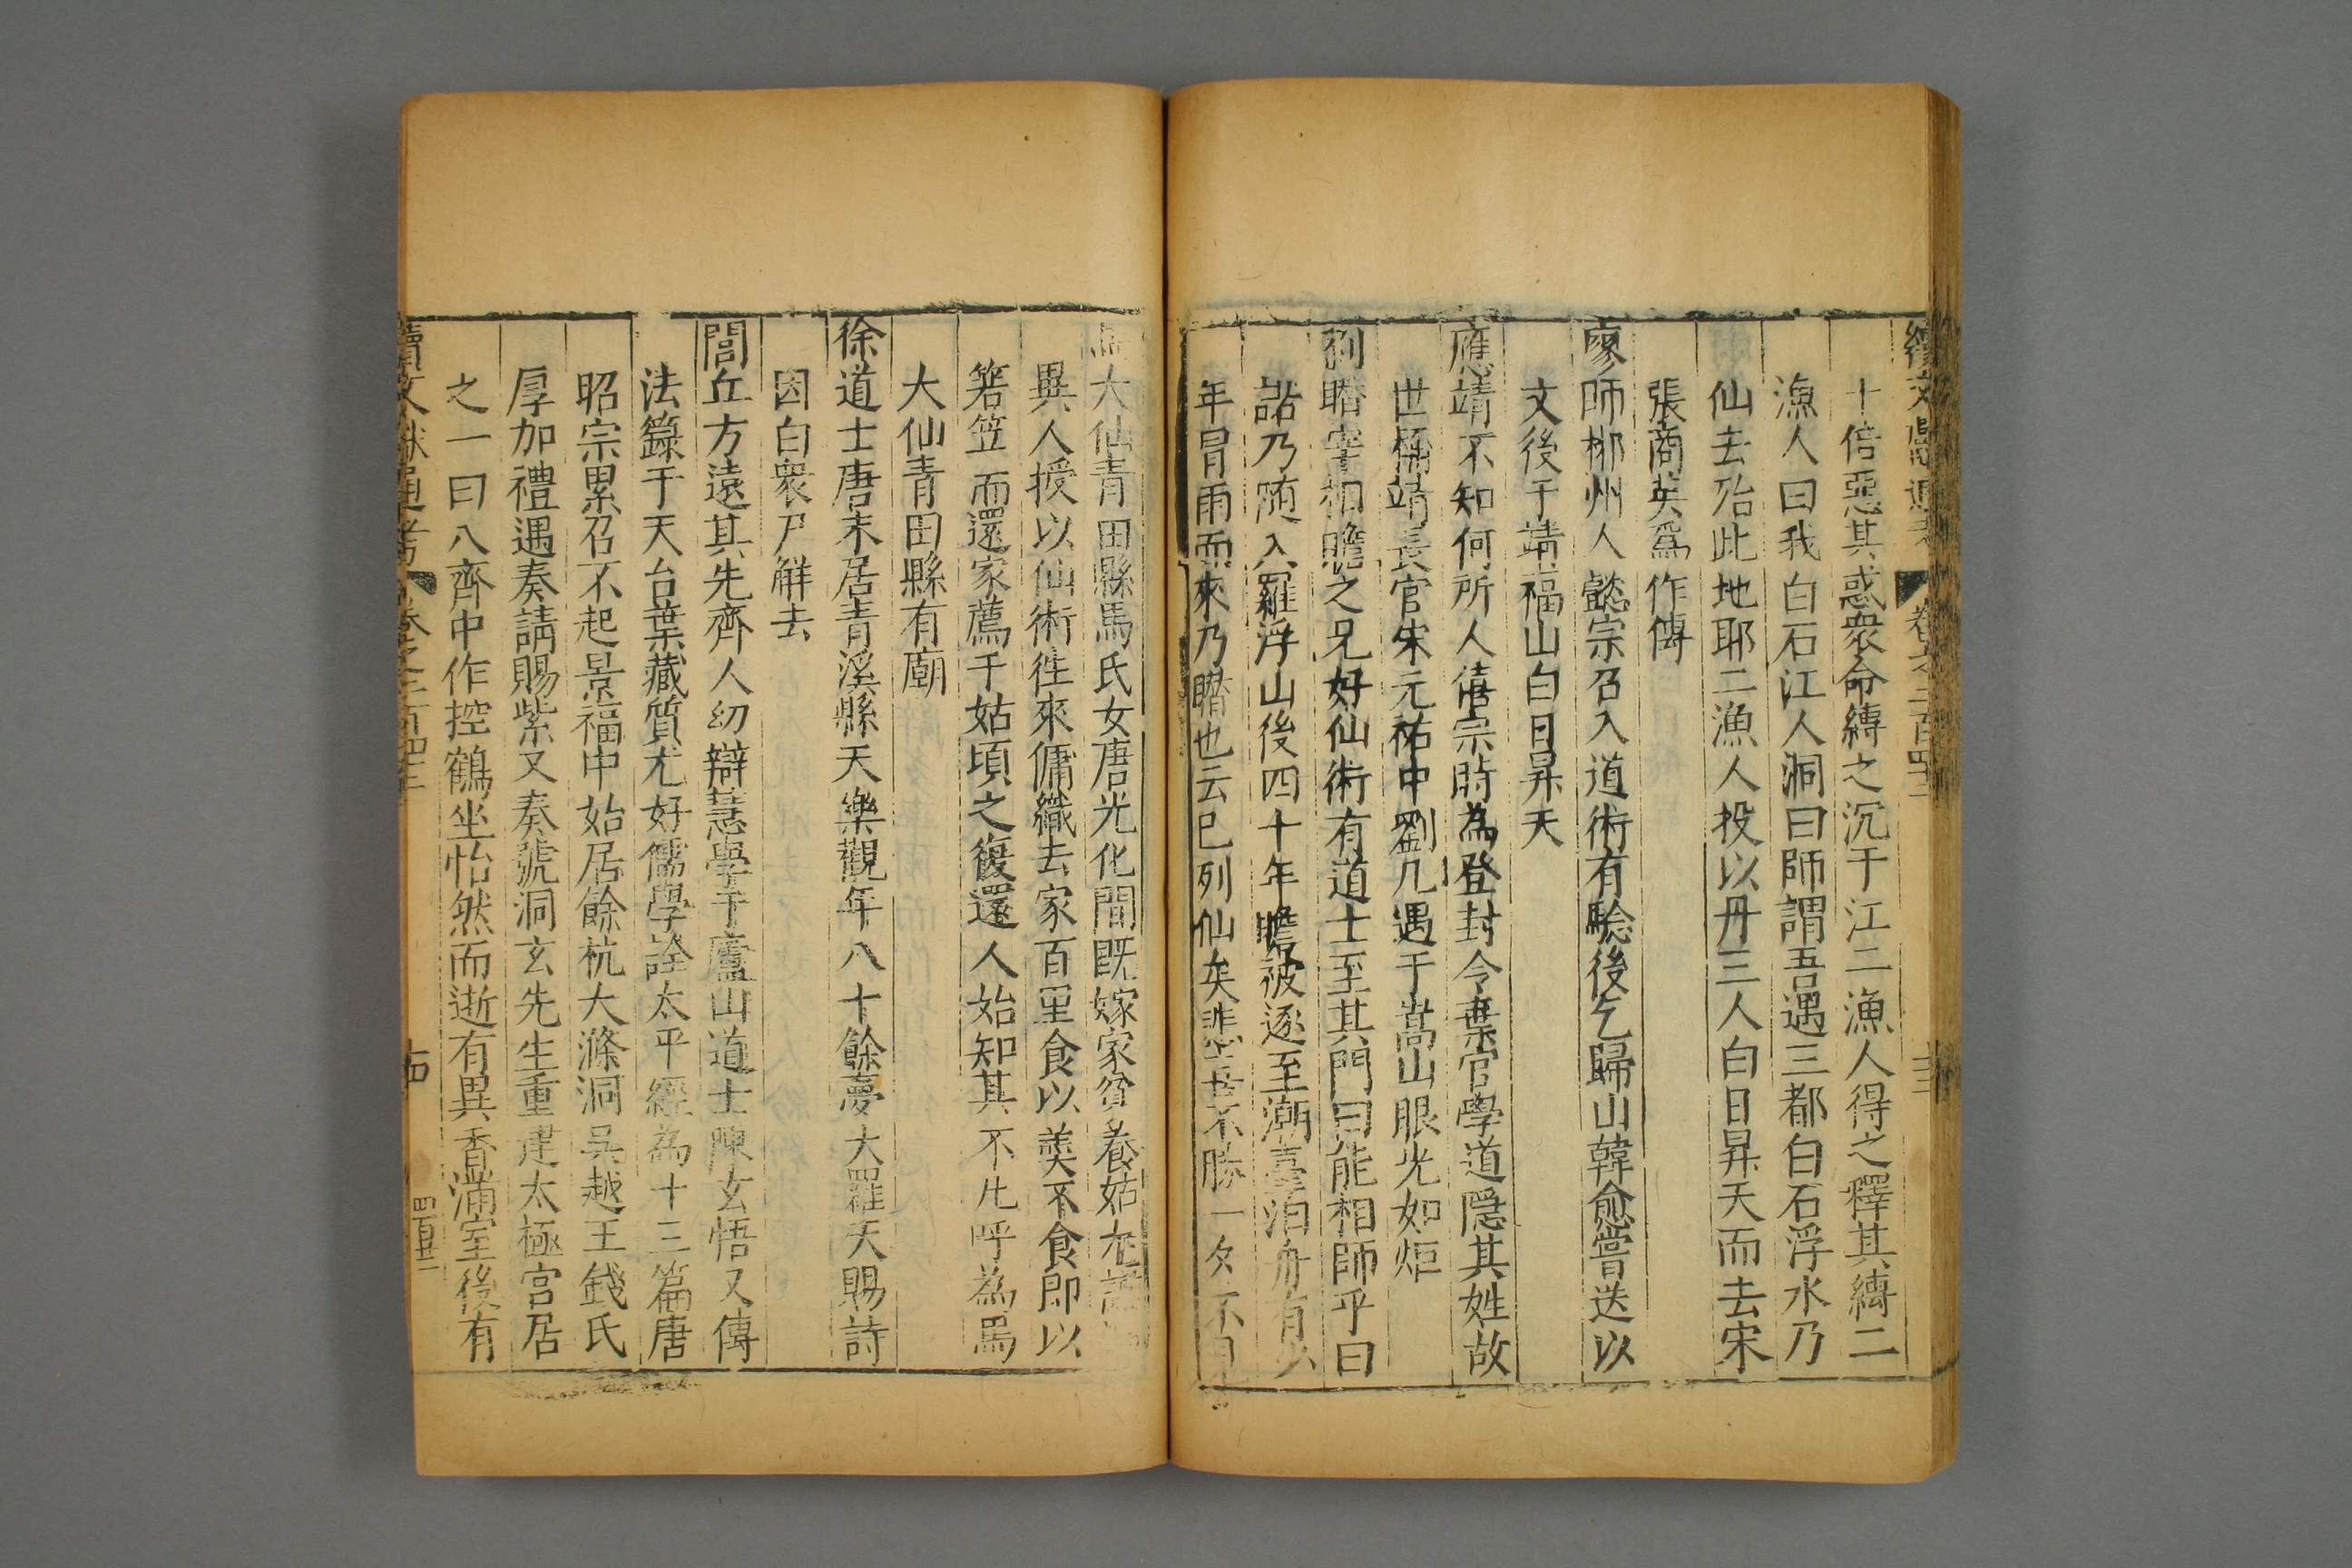 續文獻通考 卷之二百四十二 十三
十倍惡其惑衆命縛之沉于江二漁人得之釋其縛二
漁人曰我白石江人洞曰師謂吾遇三都白石浮水乃
仙去殆此地耶二漁人投以丹三人白日昇天而去宋
張商英爲作傳
廖師郴州人懿宗召入道術有驗後乞歸山韓愈嘗送以
文後于靖福山白日昇天
應靖不知何所人僖宗時為登封令棄官學道隱其姓故
世稱靖長官宋元祐中劉几遇于嵩山眼光如炬
劉瞻宰相瞻之兄好仙術有道士至其門曰能相師乎曰
諾乃随入羅浮山後四十年瞻被逐至潮臺泊舟有少
年冒雨而來乃瞻也云已列仙矣悲喜不勝一夕不見
大仙青田縣馬氏女唐光化間既嫁家貧養姑尤謹
異人授以仙術徃來傭織去家百里食以羮不食即以
箬笠而還家薦于姑頃之復還人始知其不凡呼為馬
大仙青田縣有廟
徐道士唐末居青溪縣天樂觀年八十餘夢大羅天賜詩
因白衆尸解去
閭丘方遠其先齊人幼辯慧學于廬山道士陳玄悟又傳
法籙于天台葉藏質尤好儒學詮太平經為十三篇唐
昭宗累召不起景福中始居餘杭大滌洞吳越王錢氏
厚加禮遇奏請賜紫又奏號洞玄先生重建太極宮居
之一曰八齊中作控鶴坐怡然而逝有異香滿室後有
續文獻通考 卷之二百四十二 十四